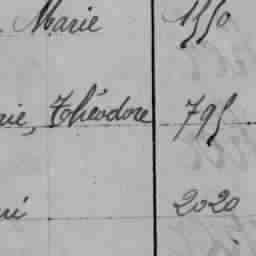 Marie 1550
rie, Théodore 795
ri 2020